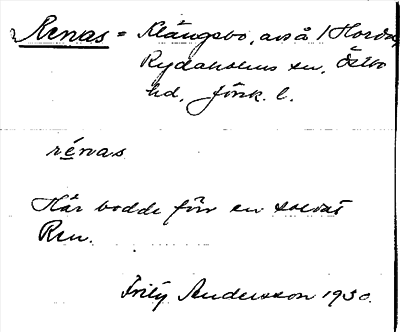 Renas = Klängsbo, avs å 1 Horda,
Rydaholms sn, Östbo
hd, Jönk. l.
rénas
Här bodde förr en soldat
Ren.
Fritz Andersson 1930.